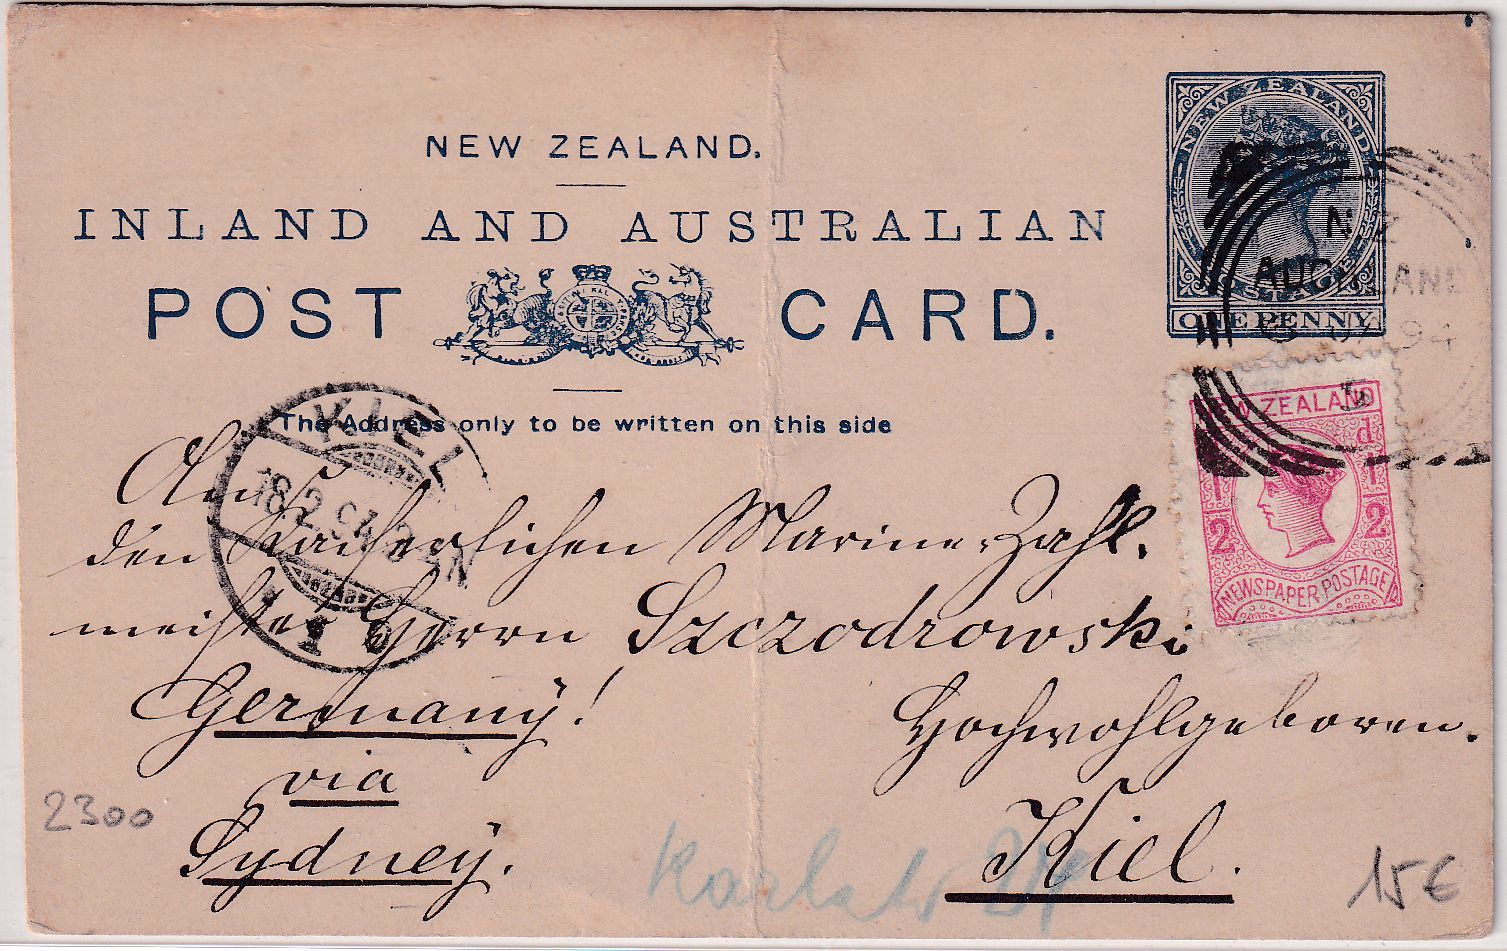 NEW ZEALAND.
INLAND AND AUSTRALIAN
POST CARD.
The Address only to be written on this side
NEW ZEALAND
POSTAGE
ONE PENNY
N Z
AUCKLAND
94
NEW ZEALAND
1/2 d 1/2
NEWSPAPER POSTAGE
KIEL
18.2.94.
1
An
den Kaiserlichen Marine-Zahl-
meister Herrn Szczodrowski
Germany!
Hochwohlgeboren.
via
Sydney.
Kiel.
2300
15€